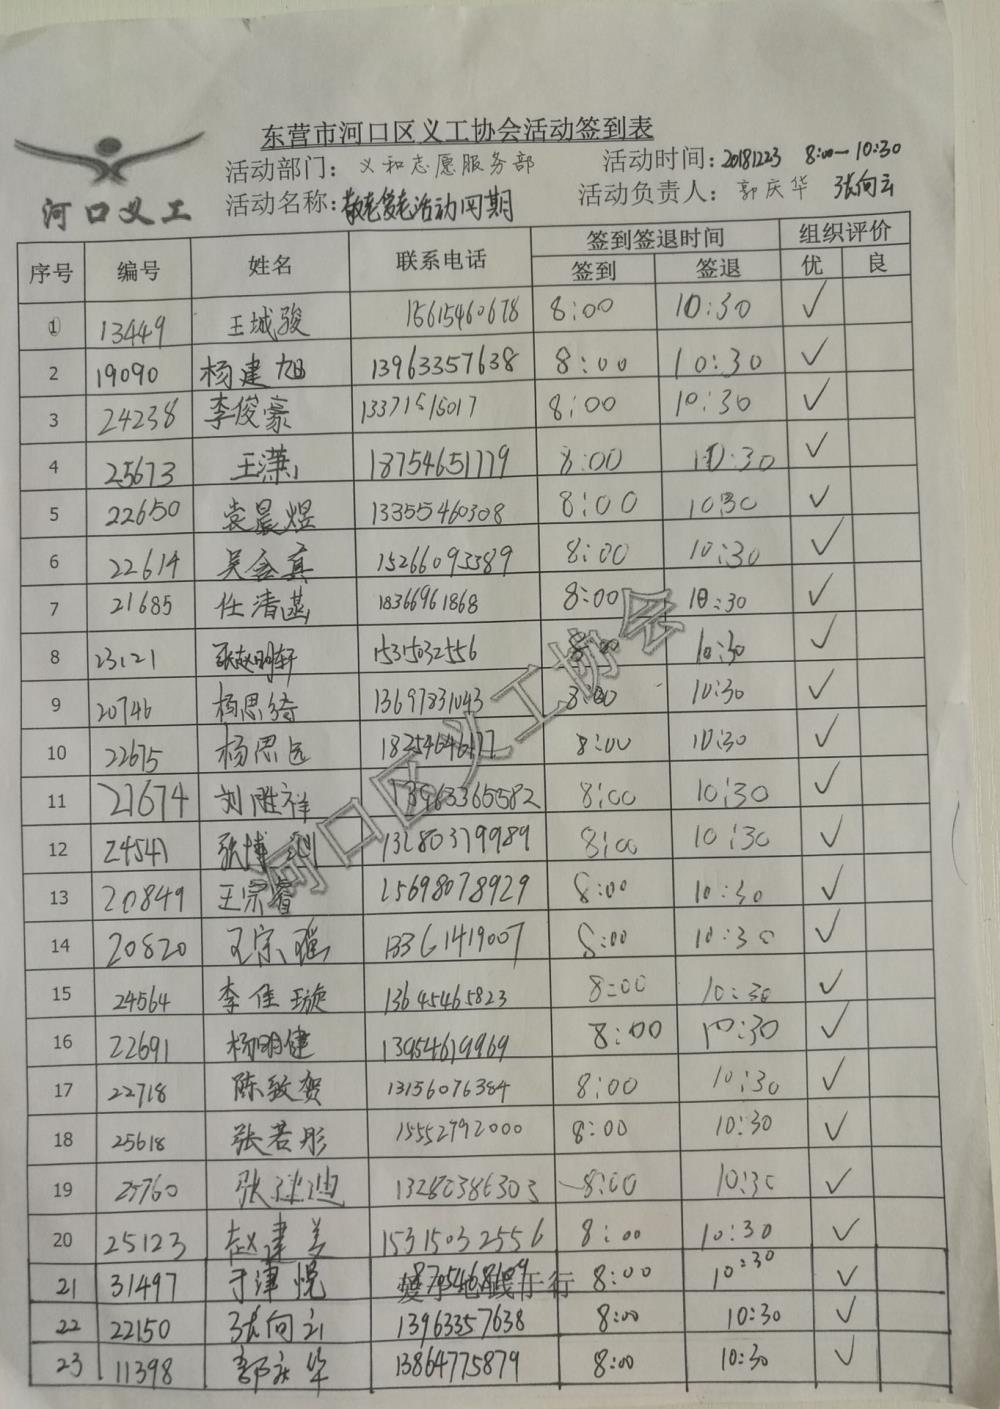 东营市河口区义工协会活动签到表
活动部门：义和志愿服务部 活动时间：20181223 8:00—10:30
河口义工
活动名称：敬老爱老活动四期 活动负责人：郭庆华 张向云
序号 编号 姓名 联系电话 签到签退时间 组织评价
签到 签退 优 良
① 13449 王城骏 15615460678 8:00 10:30 ✓
2 19090 杨建旭 13963357638 8:00 10:30 ✓
3 24238 李俊豪 13371515017 8:00 10:30 ✓
4 25673 王潇 18754651779 8:00 10:30 ✓
5 22650 袁晨煜 13355460308 8:00 10:30 ✓
6 22614 吴鑫真 15266093389 8:00 10:30 ✓
7 21685 任清菡 18366961868 8:00 10:30 ✓
8 23121 张赵明轩 15315032556 8:00 10:30 ✓
9 20746 杨思绮 13697831043 8:00 10:30 ✓
10 22675 杨思远 8:00 10:30 ✓
11 21674 刘胜祥 13963365582 8:00 10:30 ✓
12 24541 张博 13280379989 8:00 10:30 ✓
13 20849 王宗睿 25698078929 8:00 10:30 ✓
14 20820 王宗瑶 13361419007 8:00 10:30 ✓
15 24564 李佳璇 13645465823 8:00 10:30 ✓
16 22691 杨明健 13954619969 8:00 10:30 ✓
17 22718 陈致贺 13156076384 8:00 10:30 ✓
18 25618 张若彤 15552792000 8:00 10:30 ✓
19 25760 张 迪 13280386303 8:00 10:30 ✓
20 25123 赵建美 15315032556 8:00 10:30 ✓
21 31497 于津悦 8:00 10:30 ✓
22 22150 张向云 13963357638 8:00 10:30 ✓
23 11398 郭庆华 13864775879 8:00 10:30 ✓
河口区义工协会